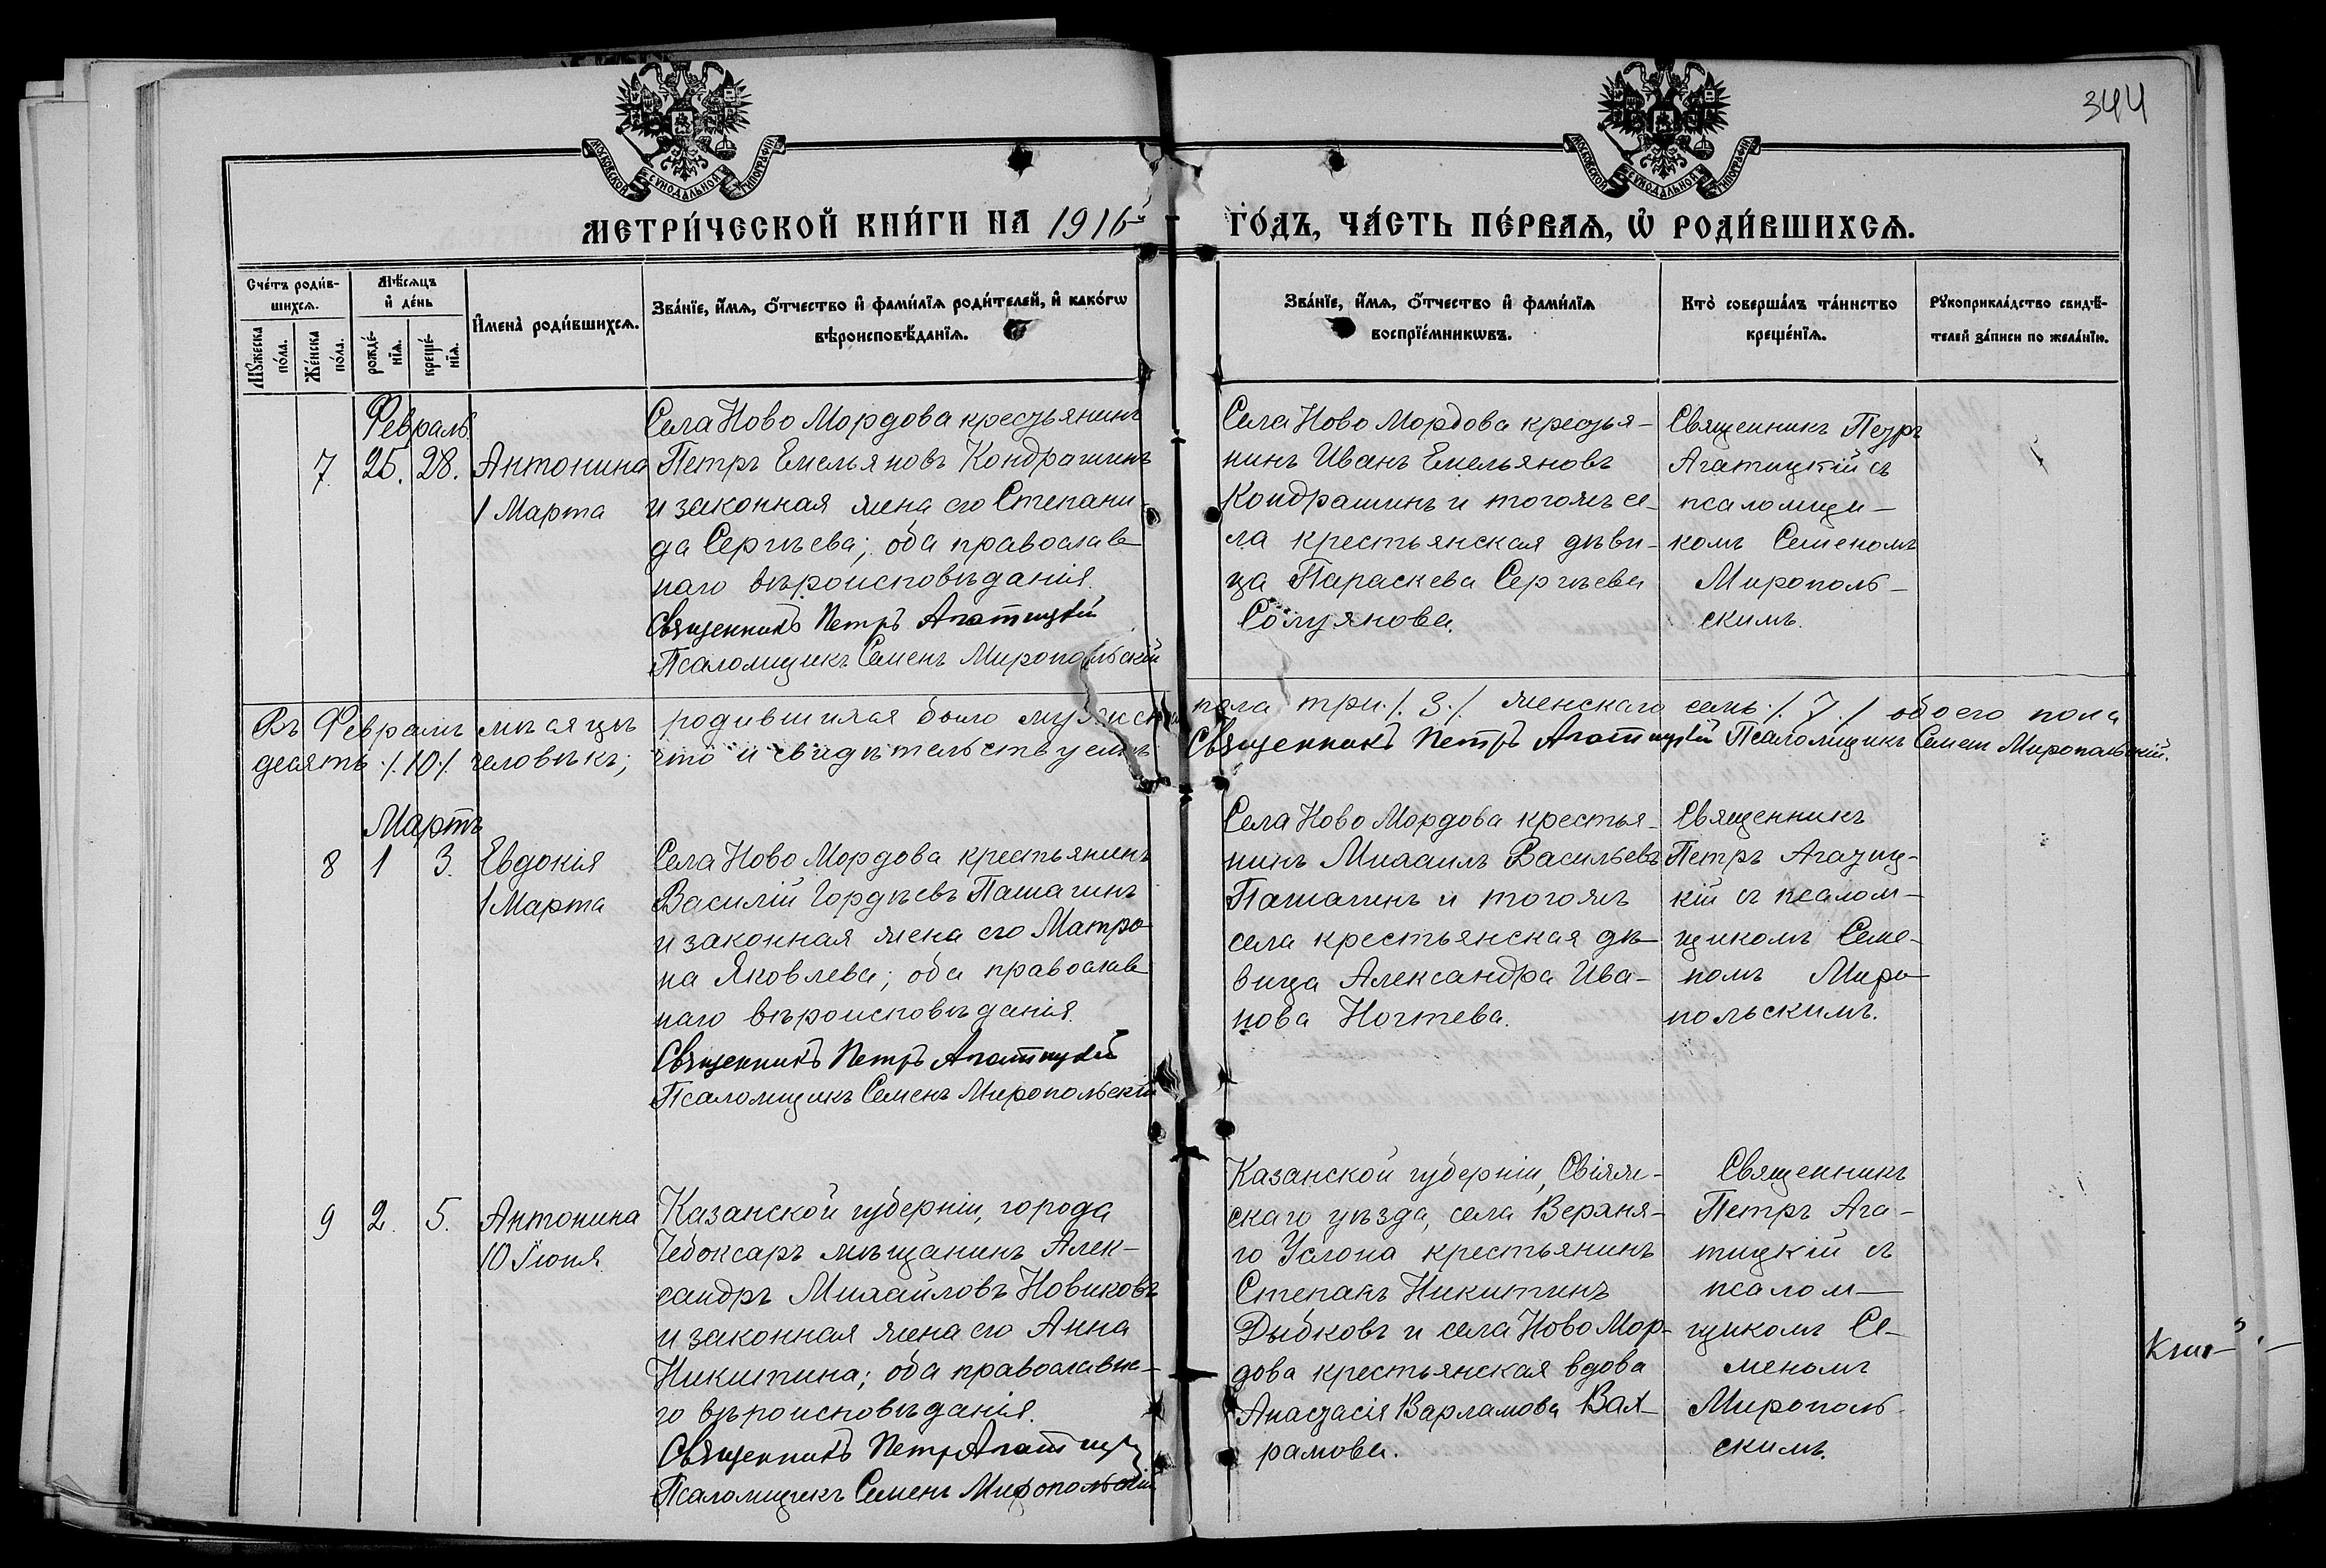 344
МОСКОВСКОЙ СѴНОДАЛЬНОЙ ТИПОГРАФІИ
МОСКОВСКОЙ СѴНОДАЛЬНОЙ ТИПОГРАФІИ
МЕТРИ́ЧЕСКОЙ КНИ́ГИ НА 1916й ГО́ДЪ, ЧА́СТЬ ПЕ́РВАѦ, Ѽ РОДИ́ВШИХСѦ.
Сче́тъ роди́в-
шихсѧ.
Мꙋ́жеска
по́ла.
Же́нска
по́ла.
Мѣ́сѧцъ
и҆ де́нь
рожде́-
нїѧ.
креще́-
нїѧ.
И҆мена̀ роди́вшихсѧ.
Зва́нїе, и҆́мѧ, ѻ҆́тчество и҆ фами́лїѧ роди́телей, и҆ како́гѡ
вѣроисповѣ́данїѧ.
Зва́нїе, и҆́мѧ, ѻ҆́тчество и҆ фами́лїѧ
воспрїе́мникѡвъ.
Кто̀ соверша́лъ та́инство
креще́нїѧ.
Рꙋкоприкла́дство свидѣ́-
телей за́писи по жела́нїю.
Февраль.
7 25. 28. Антонина
1 Марта
Села Ново Мордова крестьянинъ
Петръ Емельяновъ Кондрашинъ
и законная жена его Степани-
да Сергѣева; оба православ
наго вѣроисповѣданія.
Священникъ Петръ Агатицкій
Псаломщикъ Семенъ Миропольскій
Села Ново Мордова крестья-
нинъ Иванъ Емельяновъ
Кондрашинъ и тогожъ се-
ла крестьянская дѣви-
ца Параскева Сергѣева
Солуянова.
Священникъ Петръ
Агатицкій съ
псаломщи-
комъ Семеномъ
Мирополь-
скимъ.
Въ Февралѣ мѣсяцѣ родившихся было мужска пола три ./. 3 ./. женскаго семь ./. 7 ./. обоего пола
десять ./. 10 ./. человѣкъ; что и свидѣтельствуемъ Священникъ Петръ Агатицкій Псаломщикъ Семен Миропольскій.
Мартъ
8 1 3. Евдокія
1 Марта
Села Ново Мордова крестьянинъ
Василій Гордѣевъ Пашагинъ
и законная жена его Матро
на Яковлева; оба православ
наго вѣроисповѣданія.
Священникъ Петръ Агатицкій
Псаломщикъ Семенъ Миропольскій
Села Ново Мордова крестья-
нинъ Михаилъ Васильевъ
Пашагинъ и тогожъ
села крестьянская дѣ-
вица Александра Ива-
нова Ногтева.
Священникъ
Петръ Агатиц-
кій съ псалом-
щикомъ Семе-
номъ Миро-
польскимъ.
9 2. 5. Антонина
10 Іюня
Казанской губерніи, города
Чебоксаръ мѣщанинъ Алек-
сандръ Михайловъ Новиковъ
и законная жена его Анна
Никитина; оба православна-
го вѣроисповѣданія.
Священникъ Петръ Агатиц
Псаломщикъ Семенъ Миропольскій
Казанской губерніи, Свіяж-
скаго уѣзда, села Верхня-
го Услона крестьянинъ
Степанъ Никитинъ
Дыбковъ и села Ново Мор-
дова крестьянская вдова
Анастасія Варламова Вах-
рамова.
Священникъ
Петръ Ага-
тицкій съ
псалом-
щикомъ Се-
меномъ
Мирополь-
скимъ.